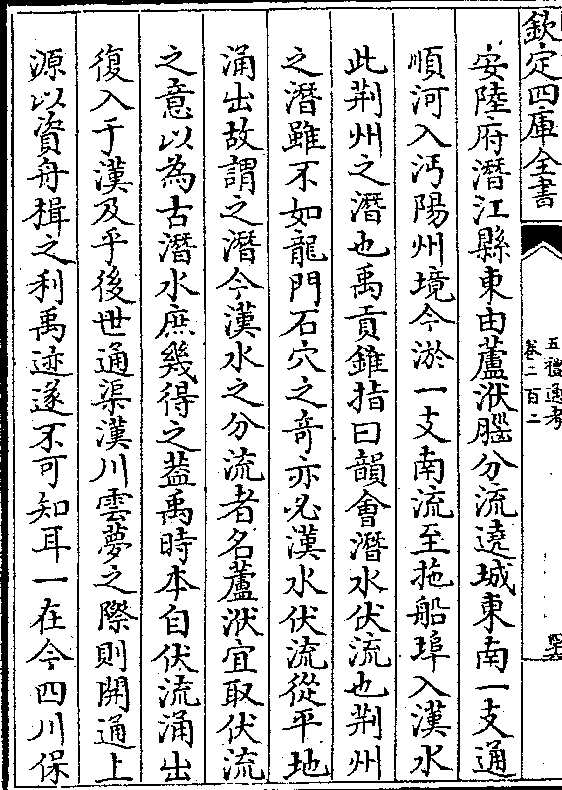 欽定四庫全書
五禮通考
卷二百二
安陸府潛江縣東由蘆洑腦分流遶城東南一支通
順河入沔陽州境今淤一支南流至拖船埠入漢水
此荆州之潛也禹貢錐指曰韻會潛水伏流也荆州
之潛雖不如龍門石穴之竒亦必漢水伏流從平地
涌出故謂之潛今漢水之分流者名蘆洑宜取伏流
之意以為古潛水庶幾得之葢禹時本自伏流涌出
復入于漢及乎後世通渠漢川雲夢之際則開通上
源以資舟楫之利禹迹遂不可知耳一在今四川保